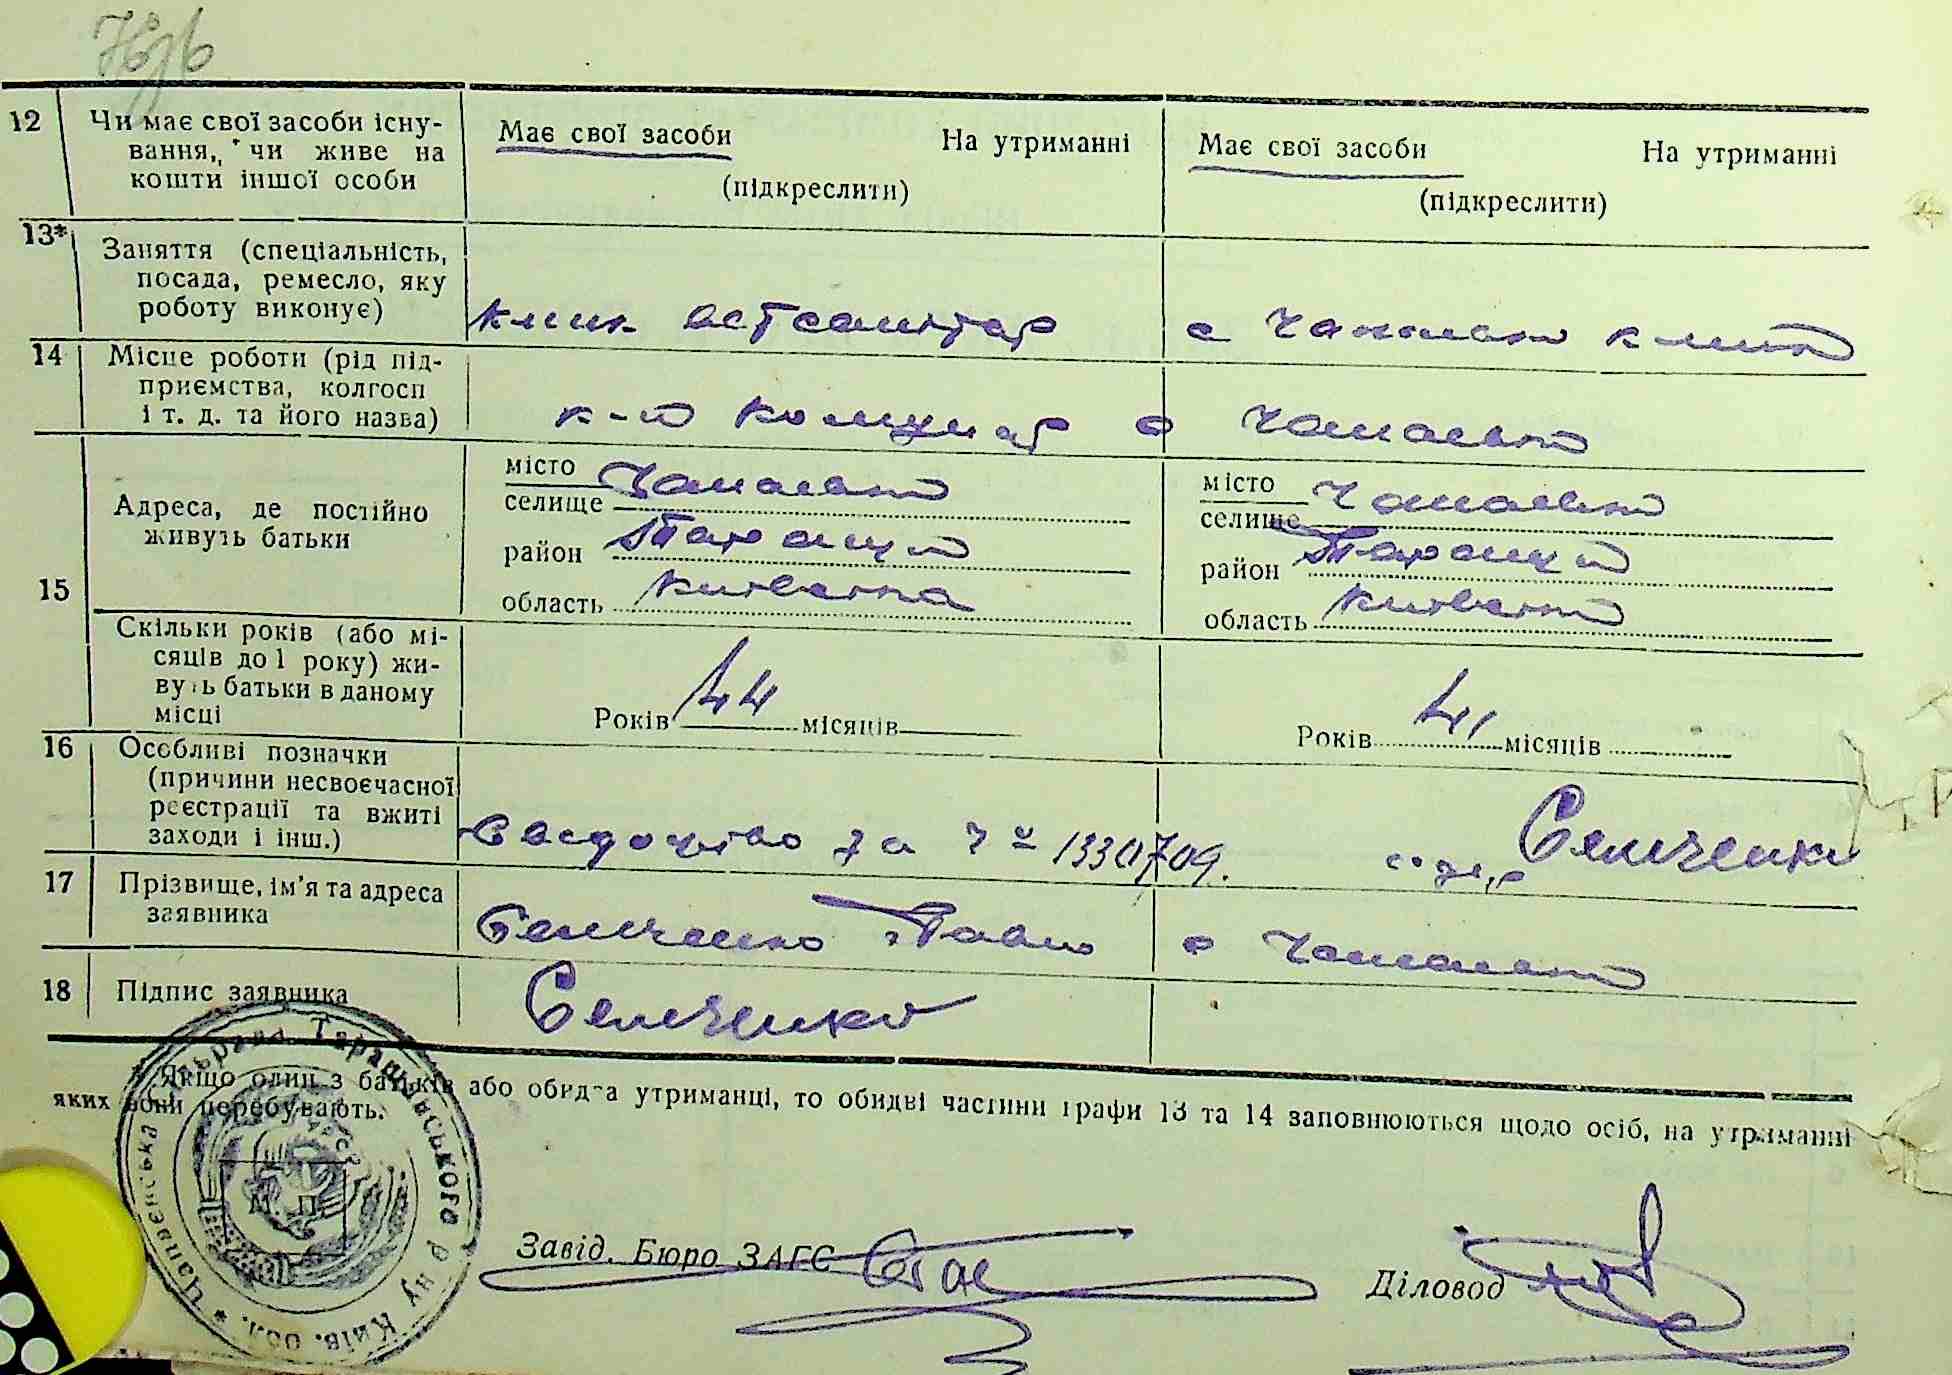 12
Чи має свої засоби існу-
вання, чи живе на
кошти іншої особи
Має свої засоби На утриманні
(підкреслити)
Має свої засоби На утриманні
(підкреслити)
13*
Заняття (спеціальність,
посада, ремесло, яку
роботу виконує)
14
Місце роботи (рід під-
приємства, колгосп
і т. д. та його назва)
к-п
15
Адреса, де постійно
живуть батьки
місто
селище
район
область
місто
селище
район
область
Скільки років (або мі-
сяців до 1 року) жи-
вуть батьки в даному
місці
Років 44 місяців
Років 41 місяців
16
Особливі позначки
(причини несвоєчасної
реєстрації та вжиті
заходи і інш.)
Свідоцтво за № 1330709. Семченко
17
Прізвище, ім'я та адреса
заявника
Семченко Павло с
18
Підпис заявника
Семченко
* Якщо один з батьків або обидва утриманці, то обидві частини графи 13 та 14 заповнюються щодо осіб, на утриманні
яких вони перебувають.
Чапаєвська сільрада Таращанського р-ну Київ. обл. *
М. П.
Завід. Бюро ЗАГС
Діловод